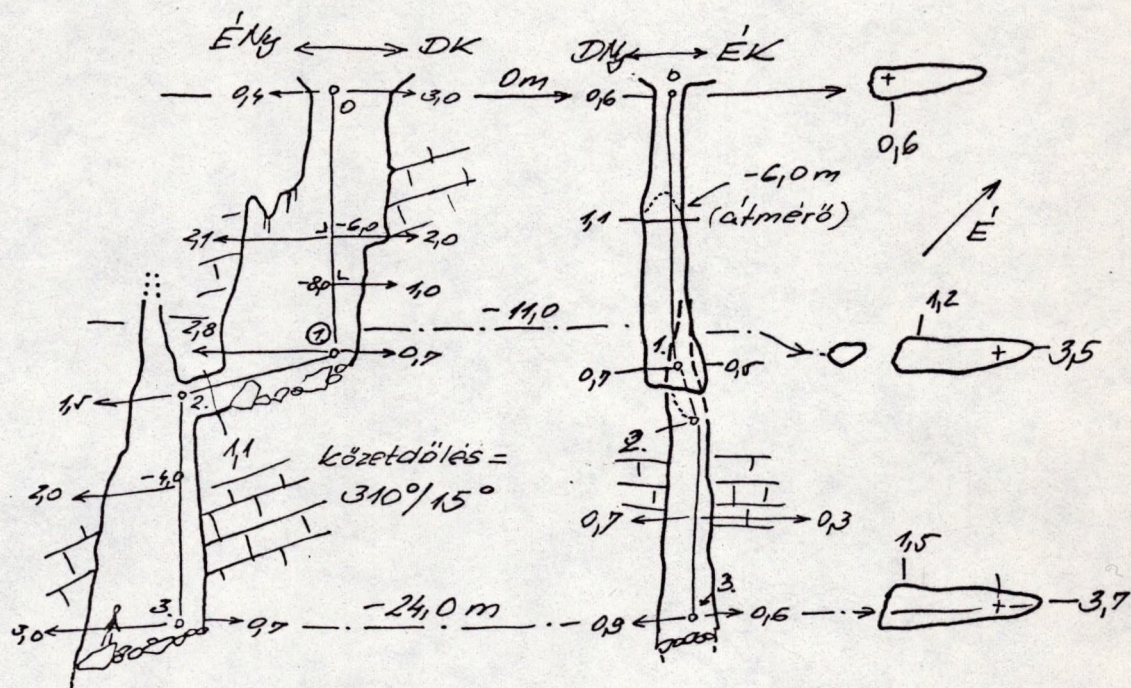 ÉNy DK
DNy ÉK
0,4 0 3,0 0m 0,6
0,6
-6,0m
(átmérő)
1,1
É
2,1 -6,0 2,0
-8,0 1,0
-11,0
1,2
2,8 1. 0,7
1. 0,7 0,5
3,5
1,5 2.
2.
1,1
kőzetdőlés=
310°/15°
2,0 -4,0
0,7 0,3
1,5
3,0 3. 0,7 -24,0 m 0,9 3. 0,6
3,7